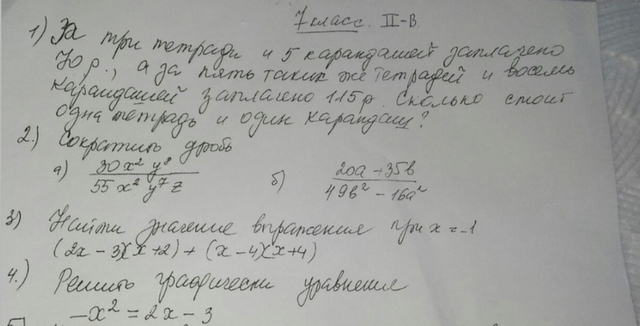 7 класс. II-В.
1) За три тетради и 5 карандашей заплачено
70 р., а за пять таких же тетрадей и восемь
карандашей заплачено 115 р. Сколько стоит
одна тетрадь и один карандаш?
2.) Сократить дробь
а) 30x² y⁸ / 55 x² y⁷ z б) 20a + 35b / 49b² - 16a²
3) Найти значение выражения при x = -1
(2x - 3)(x + 2) + (x - 4)(x + 4)
4.) Решить графически уравнения
-x² = 2x - 3